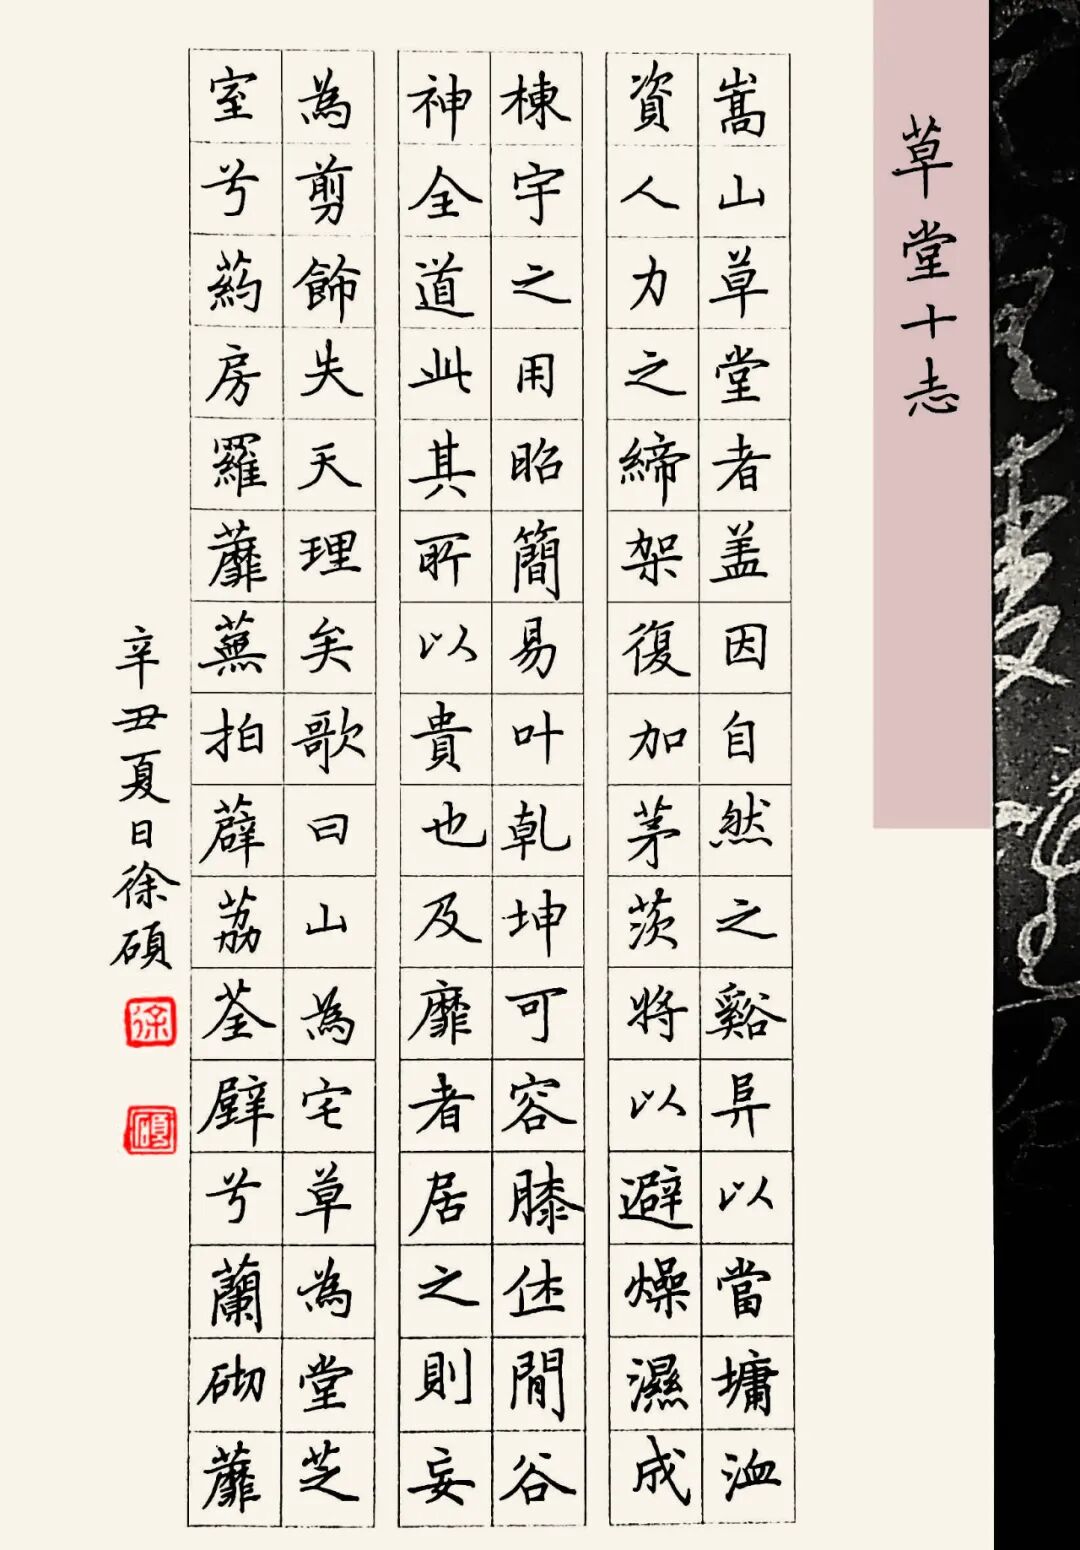 草堂十志
嵩山草堂者盖因自然之谿阜以當墉洫
資人力之締架復加茅茨將以避燥濕成
棟宇之用昭簡易叶乾坤可容膝休閒谷
神全道此其所以貴也及靡者居之則妄
為剪飾失天理矣歌曰山為宅草為堂芝
室兮葯房羅蘼蕪拍薜荔荃壁兮蘭砌蘼
辛丑夏日徐碩
徐
碩